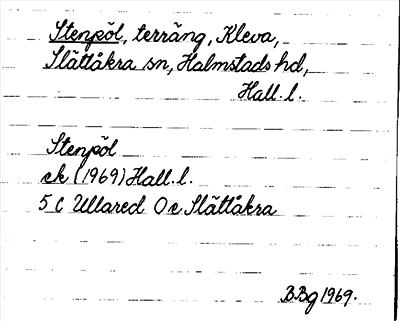 Stenpöl, terräng, Kleva,
Slättåkra sn, Halmstads hd,
Hall. l.
Stenpöl
ek (1969) Hall. l.
5 C Ullared O e Slättåkra
B.Bg 1969.